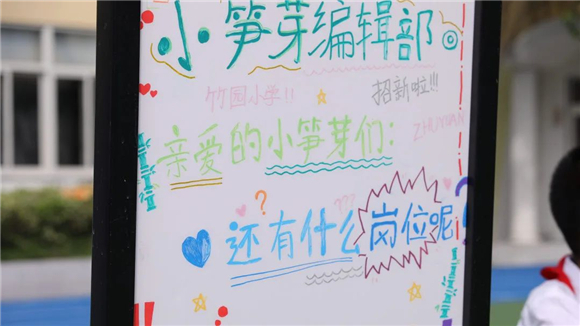 小笋芽编辑部。
竹园小学!!
招新啦!!!
ZHUYUAN
亲爱的小笋芽们:
???
还有什么岗位呢?